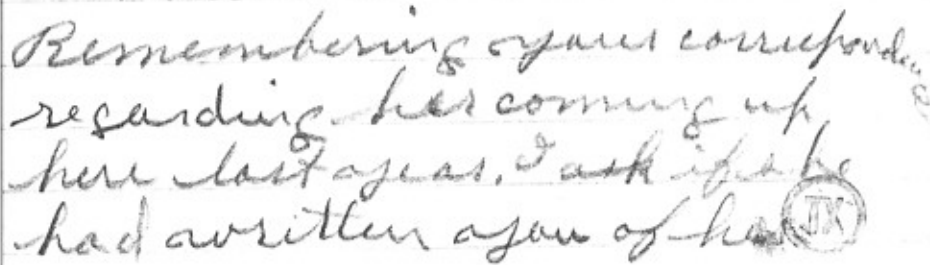 Remembering your correspondence
regarding her coming up
here last year, I ask if she
had written you of her